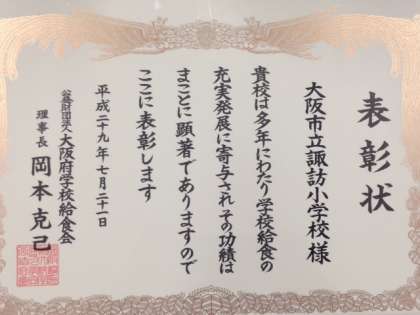 表彰状
大阪市立諏訪小学校様
貴校は多年にわたり学校給食の
充実発展に寄与されその功績は
まことに顕著でありますので
ここに表彰します
平成二十九年七月二十一日
公益財団法人大阪府学校給食会
理事長 岡本克己